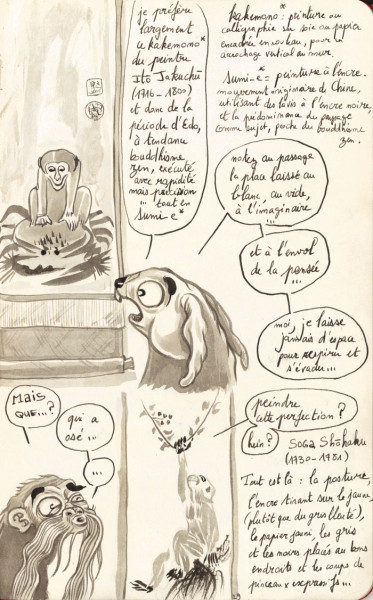 je préfère
largement
ce kakemono*
du peintre
Itō Jakuchū
(1716 - 1800)
et donc de la
période d'Edo,
à tendance
bouddhisme
zen, exécuté
avec rapidité
mais précision
... tout en
sumi-e*
kakemono* : peinture ou
calligraphie sur soie ou papier
encadrée en rouleau, pour un
accrochage vertical au mur.
sumi-e* = peinture à l'encre.
mouvement originaire de Chine,
utilisant des lavis à l'encre noire,
et la prédominance du paysage
comme sujet, proche du bouddhisme
zen.
notez au passage
la place laissée au
blanc, au vide,
à l'imaginaire
...
et à l'envol
de la pensée
...
moi, je laisse
jamais d'espace
pour respirer et
s'évader...
Mais
que...?
qui a
osé...
...
peindre
cette perfection?
hein?
Soga Shōhaku
(1730 - 1781)
Tout est là : la posture,
l'encre tirant sur le jaune,
(plutôt que du gris bleuté),
le papier jauni, les gris
et les noirs placés aux bons
endroits et les coups de
pinceaux expressifs...